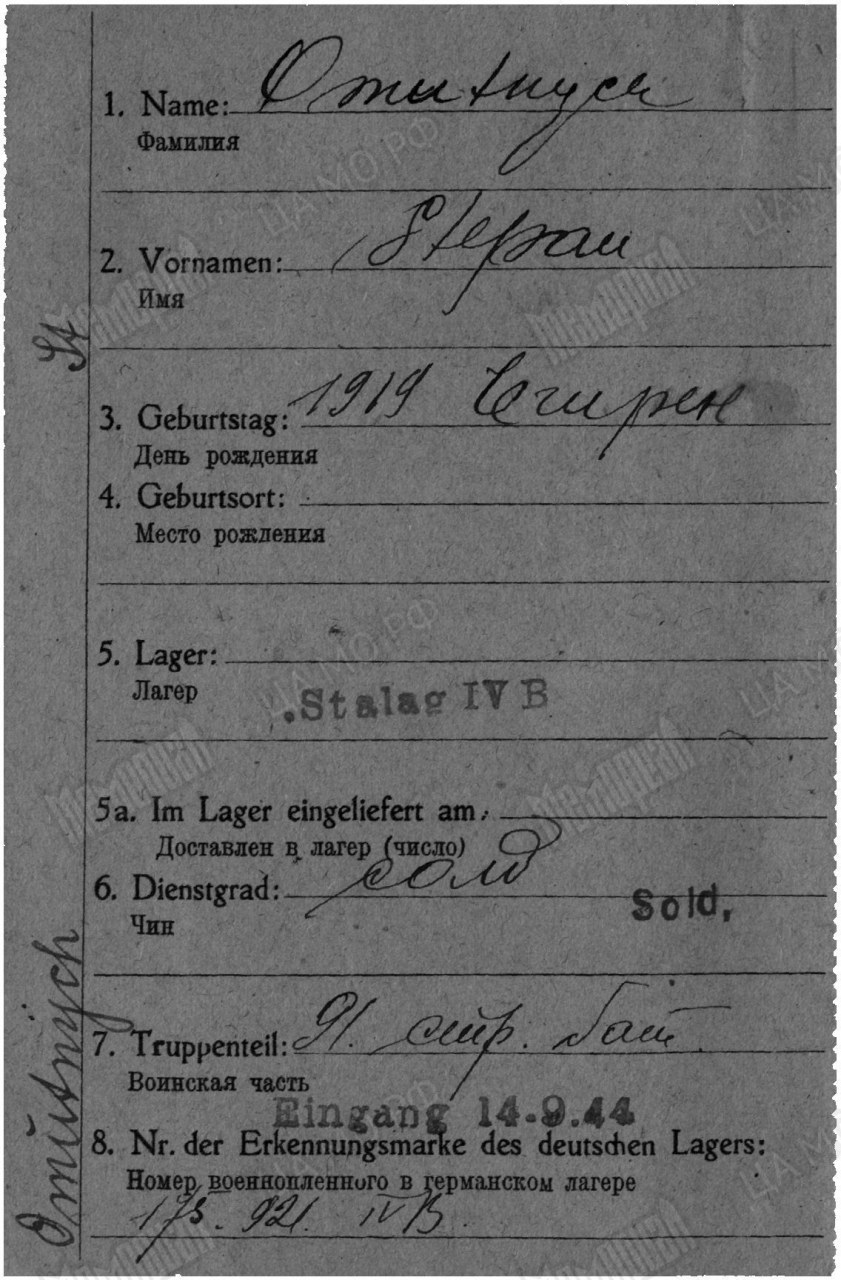 1. Name:
Фамилия
2. Vornamen: Stepan
Имя
St
3. Geburtstag: 1919
День рождения
4. Geburtsort:
Место рождения
5. Lager:
Лагер
Stalag IV B
5a. Im Lager eingeliefert am:
Доставлен в лагер (число)
6. Dienstgrad: солд
Sold,
Чин
7. Truppenteil: 91. стр. бат.
Воинская часть
Eingang 14.9.44
8. Nr. der Erkennungsmarke des deutschen Lagers:
Номер военнопленного в германском лагере
175.921. IV B.
Omutnych
ЦА МО РФ
Мемориал